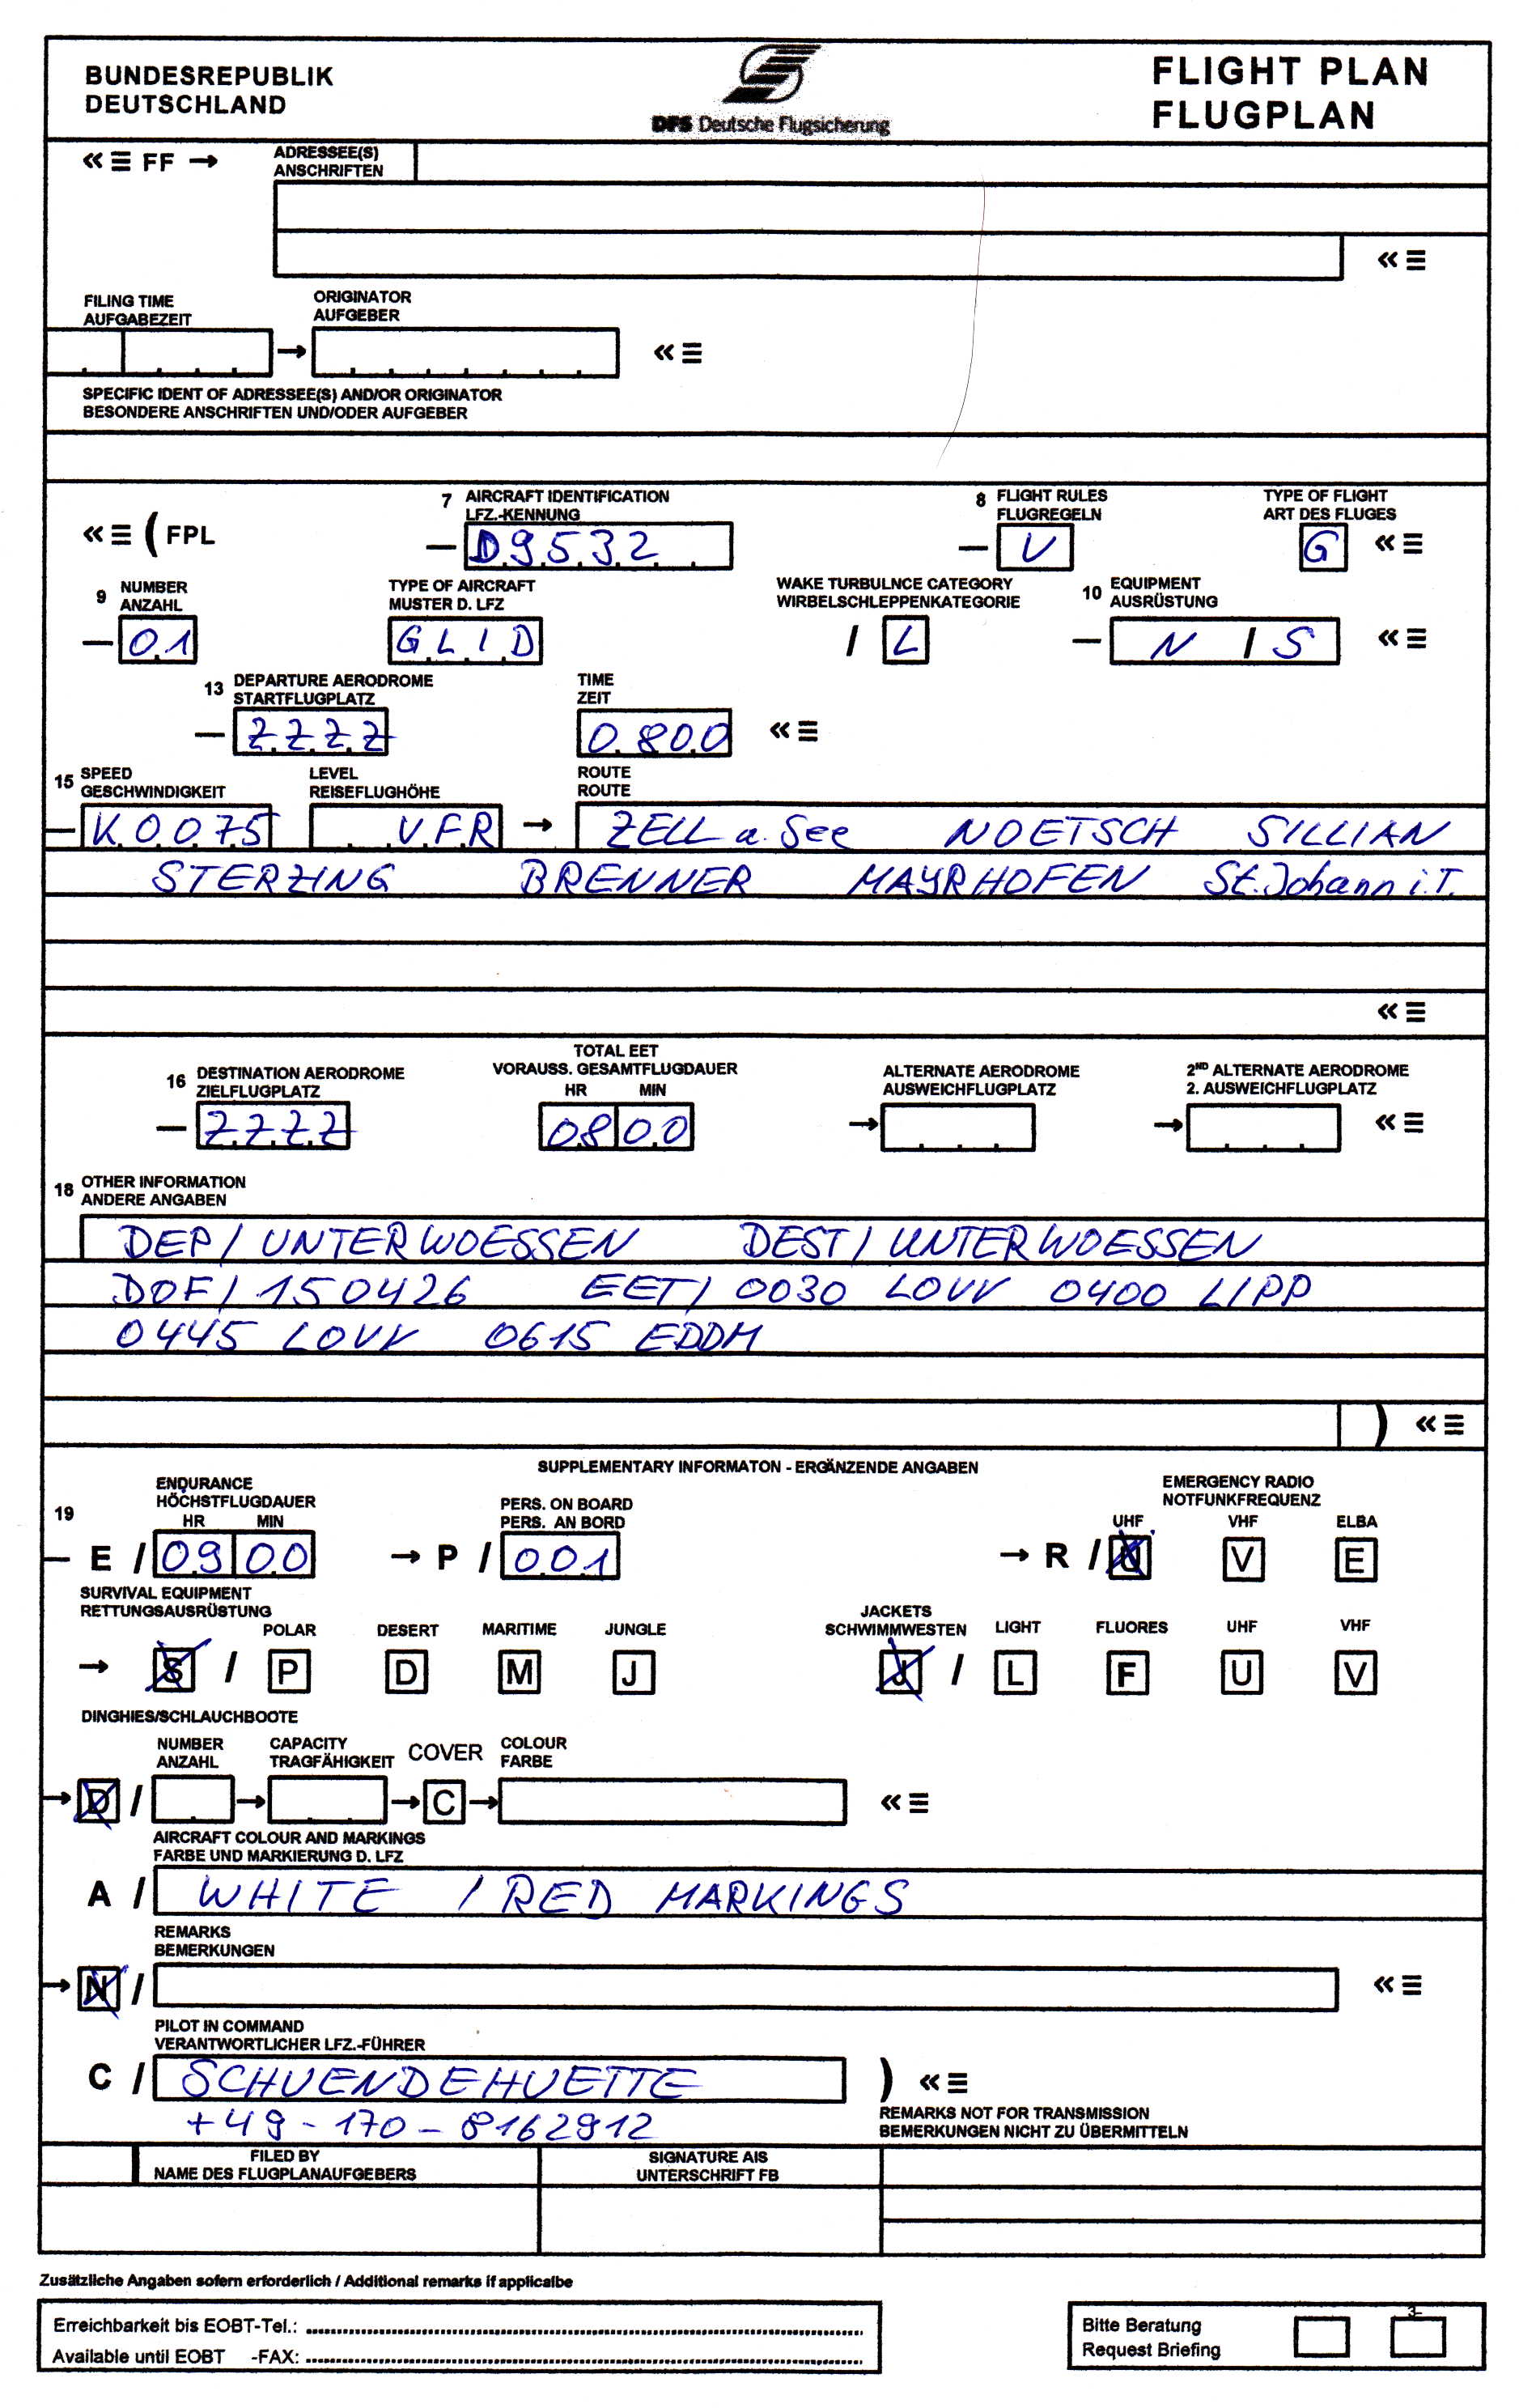 BUNDESREPUBLIK
DEUTSCHLAND
DFS Deutsche Flugsicherung
FLIGHT PLAN
FLUGPLAN
«≡ FF →
ADRESSEE(S)
ANSCHRIFTEN
«≡
FILING TIME
AUFGABEZEIT
ORIGINATOR
AUFGEBER
→ «≡
SPECIFIC IDENT OF ADRESSEE(S) AND/OR ORIGINATOR
BESONDERE ANSCHRIFTEN UND/ODER AUFGEBER
«≡ (FPL
7 AIRCRAFT IDENTIFICATION
LFZ.-KENNUNG
— D9532
8 FLIGHT RULES
FLUGREGELN
— V
TYPE OF FLIGHT
ART DES FLUGES
G «≡
9 NUMBER
ANZAHL
— 01
TYPE OF AIRCRAFT
MUSTER D. LFZ
GLID
WAKE TURBULNCE CATEGORY
WIRBELSCHLEPPENKATEGORIE
/ L
10 EQUIPMENT
AUSRÜSTUNG
— N / S «≡
13 DEPARTURE AERODROME
STARTFLUGPLATZ
— ZZZZ
TIME
ZEIT
0800 «≡
15 SPEED
GESCHWINDIGKEIT
— K0075
LEVEL
REISEFLUGHÖHE
VFR →
ROUTE
ROUTE
ZELL a. See NOETSCH SILLIAN
STERZING BRENNER MAYRHOFEN St. Johann i.T.
«≡
16 DESTINATION AERODROME
ZIELFLUGPLATZ
— ZZZZ
TOTAL EET
VORAUSS. GESAMTFLUGDAUER
HR MIN
0800
ALTERNATE AERODROME
AUSWEICHFLUGPLATZ
→
2ND ALTERNATE AERODROME
2. AUSWEICHFLUGPLATZ
→ «≡
18 OTHER INFORMATION
ANDERE ANGABEN
DEP/ UNTERWOESSEN DEST/ UNTERWOESSEN
DOF/ 150426 EET/ 0030 LOVV 0400 LIPP
0445 LOVV 0615 EDDM
) «≡
SUPPLEMENTARY INFORMATON - ERGÄNZENDE ANGABEN
19 ENDURANCE
HÖCHSTFLUGDAUER
HR MIN
— E / 0900
PERS. ON BOARD
PERS. AN BORD
→ P / 001
EMERGENCY RADIO
NOTFUNKFREQUENZ
UHF VHF ELBA
→ R / U V E
SURVIVAL EQUIPMENT
RETTUNGSAUSRÜSTUNG
POLAR DESERT MARITIME JUNGLE
→ S / P D M J
JACKETS
SCHWIMMWESTEN LIGHT FLUORES UHF VHF
J / L F U V
DINGHIES/SCHLAUCHBOOTE
NUMBER
ANZAHL
CAPACITY
TRAGFÄHIGKEIT
COVER
COLOUR
FARBE
→ D / → → C → «≡
AIRCRAFT COLOUR AND MARKINGS
FARBE UND MARKIERUNG D. LFZ
A / WHITE / RED MARKINGS
REMARKS
BEMERKUNGEN
→ N / «≡
PILOT IN COMMAND
VERANTWORTLICHER LFZ.-FÜHRER
C / SCHUENDEHUETTE ) «≡
+49-170-8162912
REMARKS NOT FOR TRANSMISSION
BEMERKUNGEN NICHT ZU ÜBERMITTELN
FILED BY
NAME DES FLUGPLANAUFGEBERS
SIGNATURE AIS
UNTERSCHRIFT FB
Zusätzliche Angaben sofern erforderlich / Additional remarks if applicalbe
Erreichbarkeit bis EOBT-Tel.:
Available until EOBT -FAX:
Bitte Beratung
Request Briefing
3-